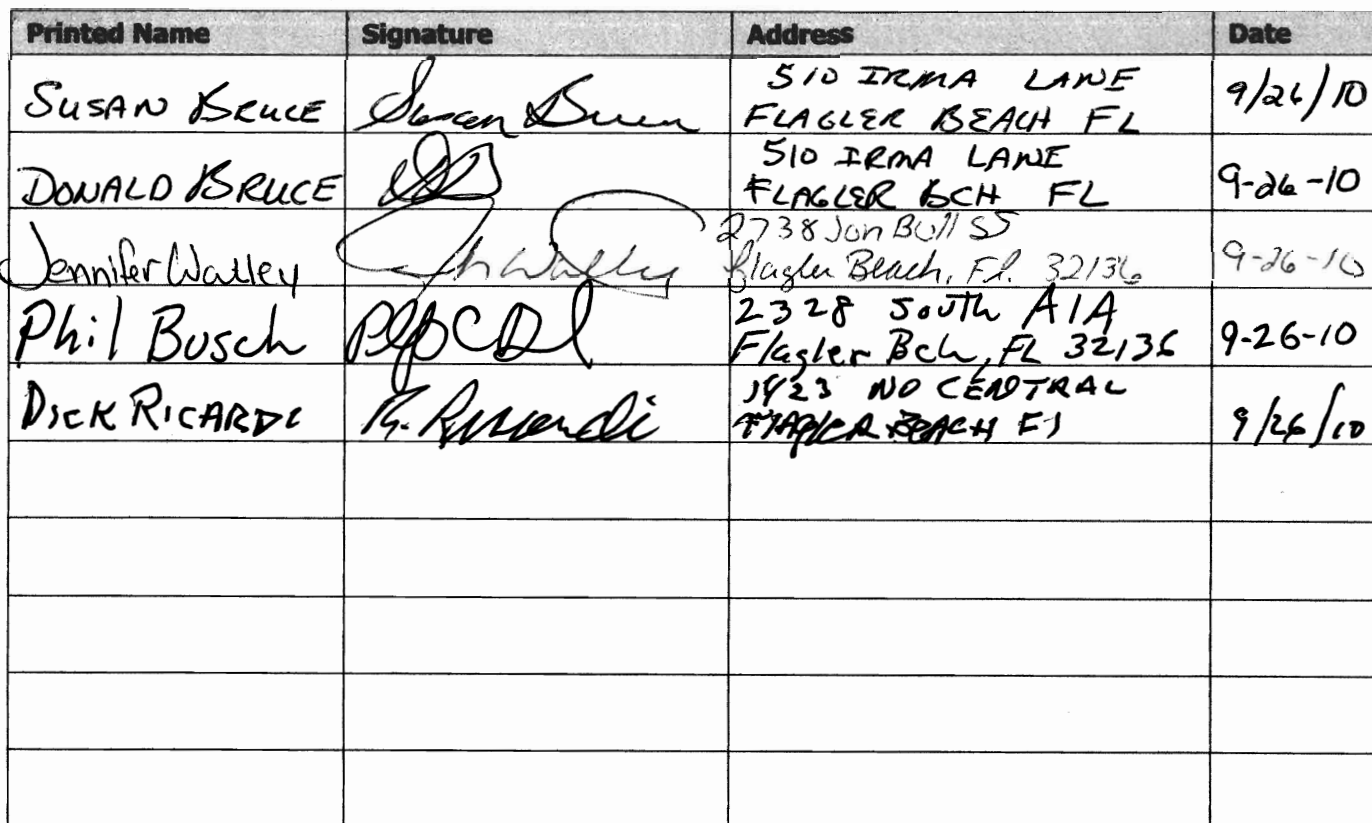 Printed Name Signature Address Date
SUSAN BRUCE Susan Bruce 510 IRMA LANE
FLAGLER BEACH FL 9/26/10
DONALD BRUCE 510 IRMA LANE
FLAGLER BCH FL 9-26-10
Jennifer Watley Watley 2738 Jon Bull
Flagler Beach, Fl. 32136 9-26-10
Phil Busch 2328 South A1A
Flagler Bch, FL 32136 9-26-10
DICK RICARDI NO CENTRAL
BEACH Fl 9/26/10